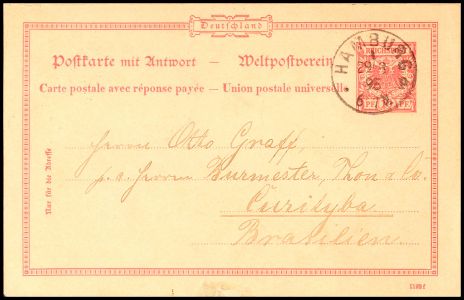 Deutschland
Postkarte mit Antwort — Weltpostverein
Carte postale avec réponse payée — Union postale universelle
HAMBURG
1
29.3
95
REICHSPOST
Nur für die Adresse
Herrn Otto Graff,
p. a. Herrn Burmester, Thon & Co.
Curityba
Brasilien